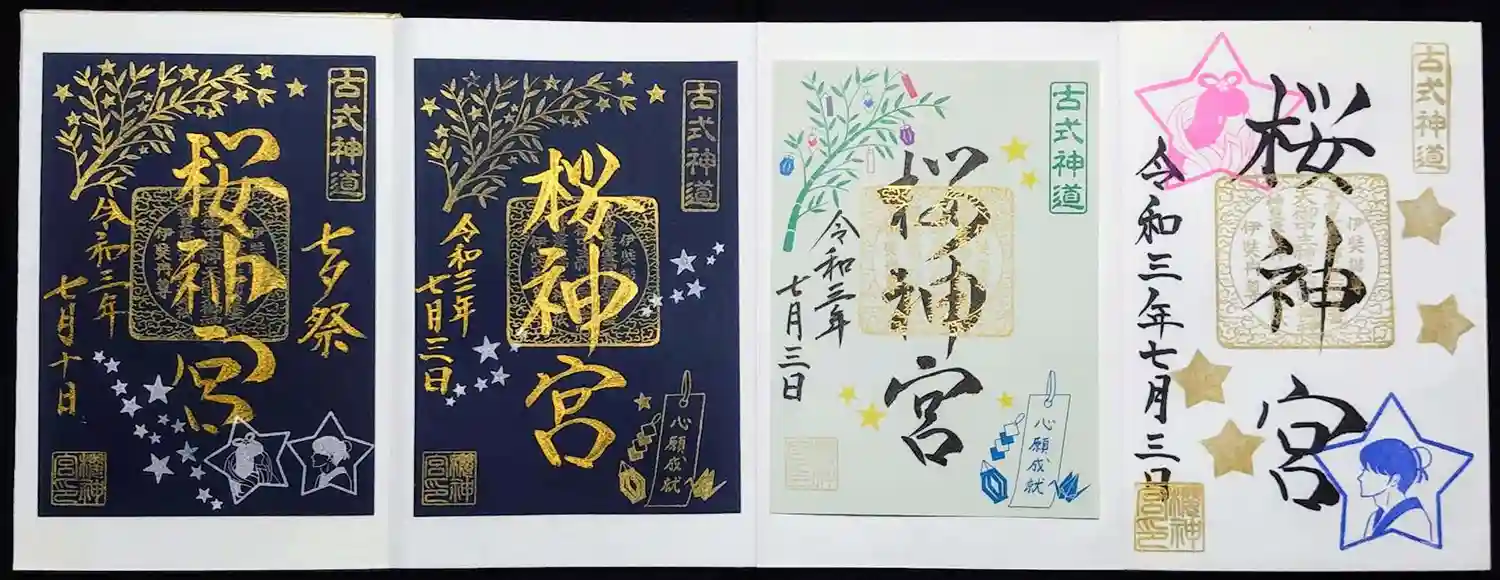 古式神道
七夕祭
桜神宮
令和三年
七月十日
櫻神宮印
古式神道
桜神宮
令和三年
七月三日
心願成就
櫻神宮印
古式神道
桜神宮
令和三年
七月三日
心願成就
櫻神宮印
古式神道
桜神宮
令和三年七月三日
櫻神宮印